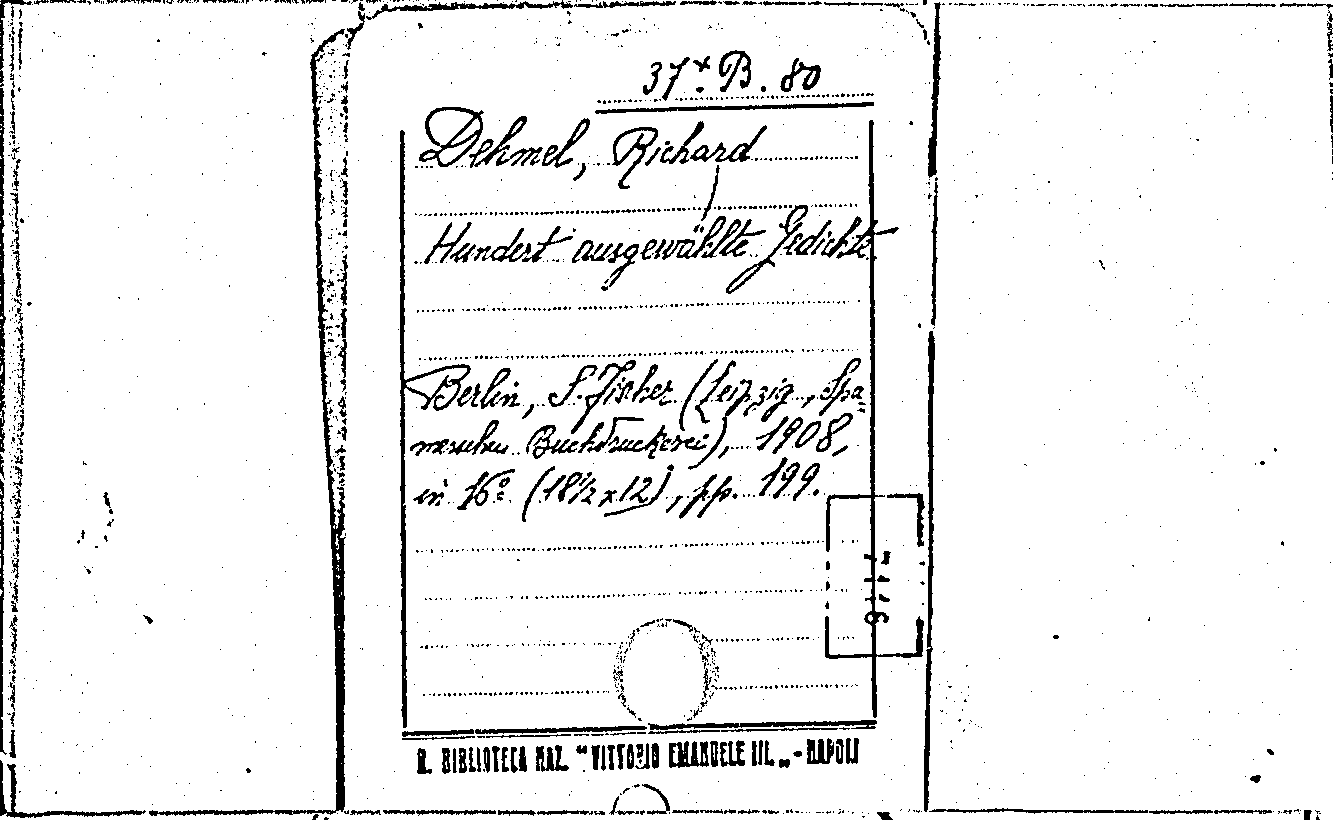 37* B. 80
Dehmel, Richard
Hundert ausgewählte Gedichte
Berlin, S. Fischer (Leipzig, Spa-
merschen Buchdruckerei), 1908,
in 16º (18½ x 12), pp. 199.
R. BIBLIOTECA NAZ. "VITTORIO EMANUELE III. „ - NAPOLI